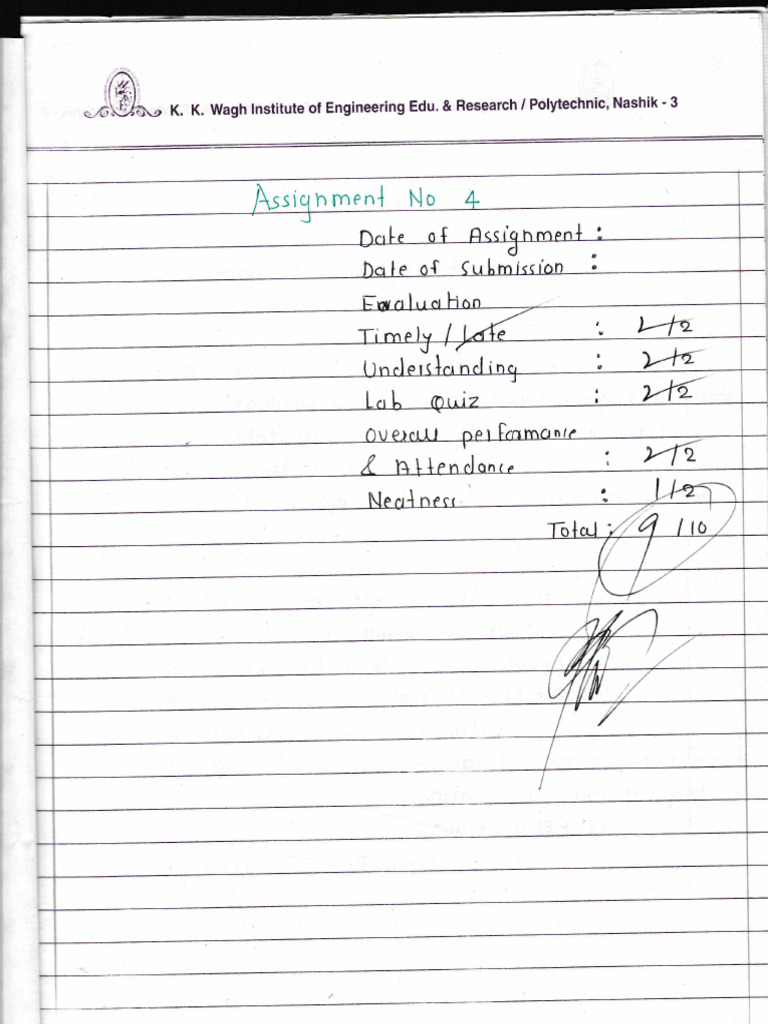 K. K. Wagh Institute of Engineering Edu. & Research / Polytechnic, Nashik - 3
Assignment No 4
Date of Assignment :
Date of Submission :
Evaluation
Timely / Late : 2/2
Understanding : 2/2
Lab Quiz : 2/2
Overall performance
& Attendance : 2/2
Neatness : 1/2
Total : 9/10